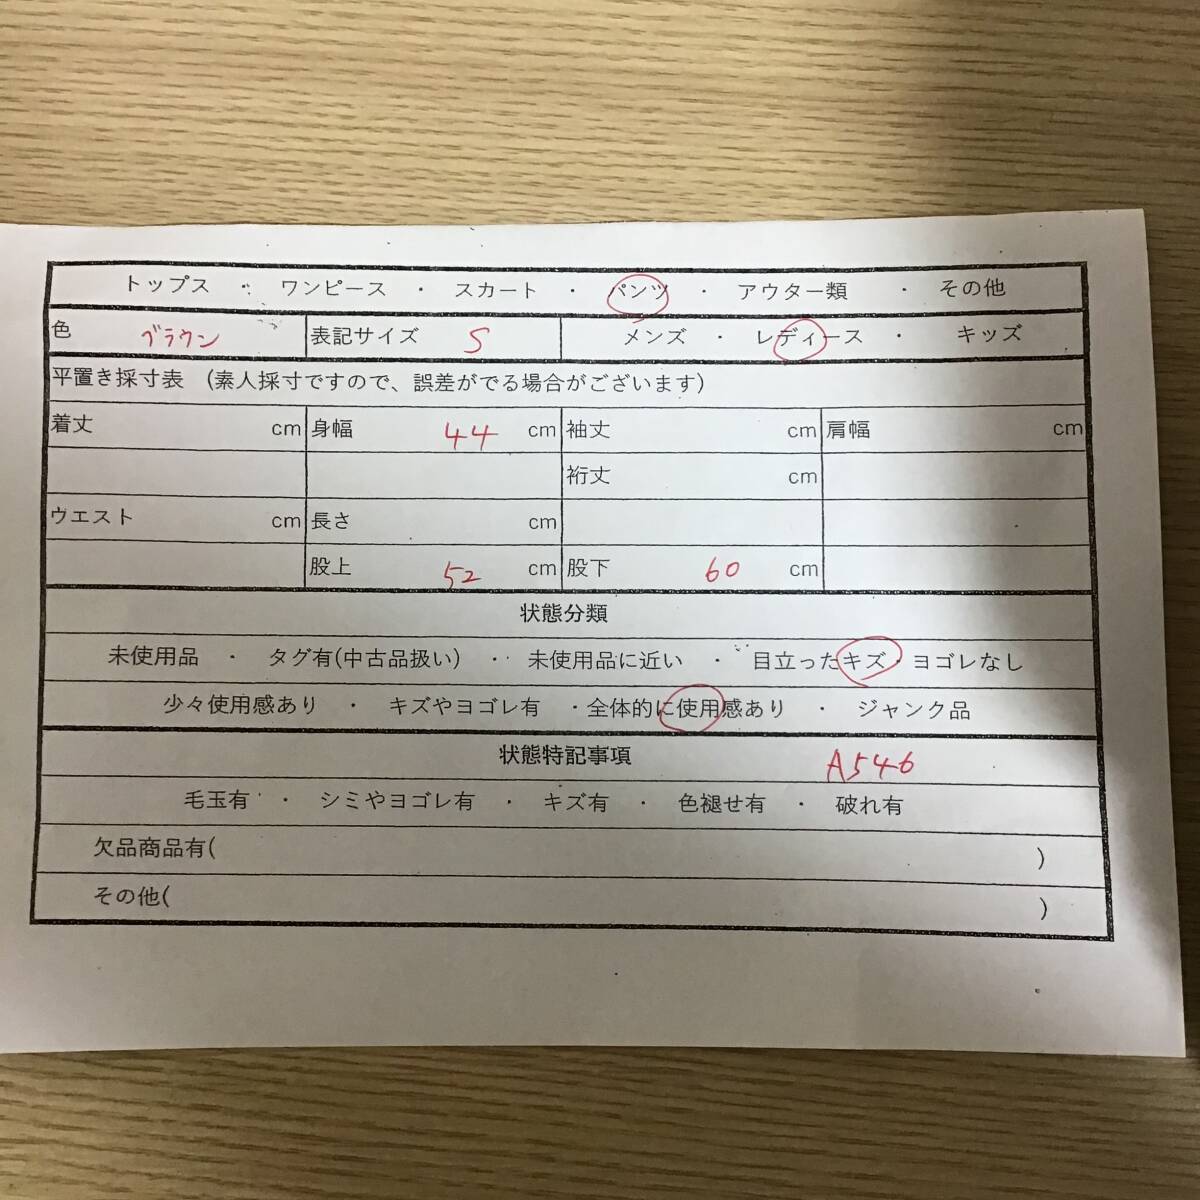 トップス ・ ワンピース ・ スカート ・ パンツ ・ アウター類 ・ その他
色 ブラウン 表記サイズ S メンズ ・ レディース ・ キッズ
平置き採寸表 (素人採寸ですので、誤差がでる場合がございます)
着丈 cm 身幅 44 cm 袖丈 cm 肩幅 cm
裄丈 cm
ウエスト cm 長さ cm
股上 52 cm 股下 60 cm
状態分類
未使用品 ・ タグ有(中古品扱い) ・ 未使用品に近い ・ 目立ったキズ・ヨゴレなし
少々使用感あり ・ キズやヨゴレ有 ・全体的に使用感あり ・ ジャンク品
状態特記事項 A546
毛玉有 ・ シミやヨゴレ有 ・ キズ有 ・ 色褪せ有 ・ 破れ有
欠品商品有( )
その他( )